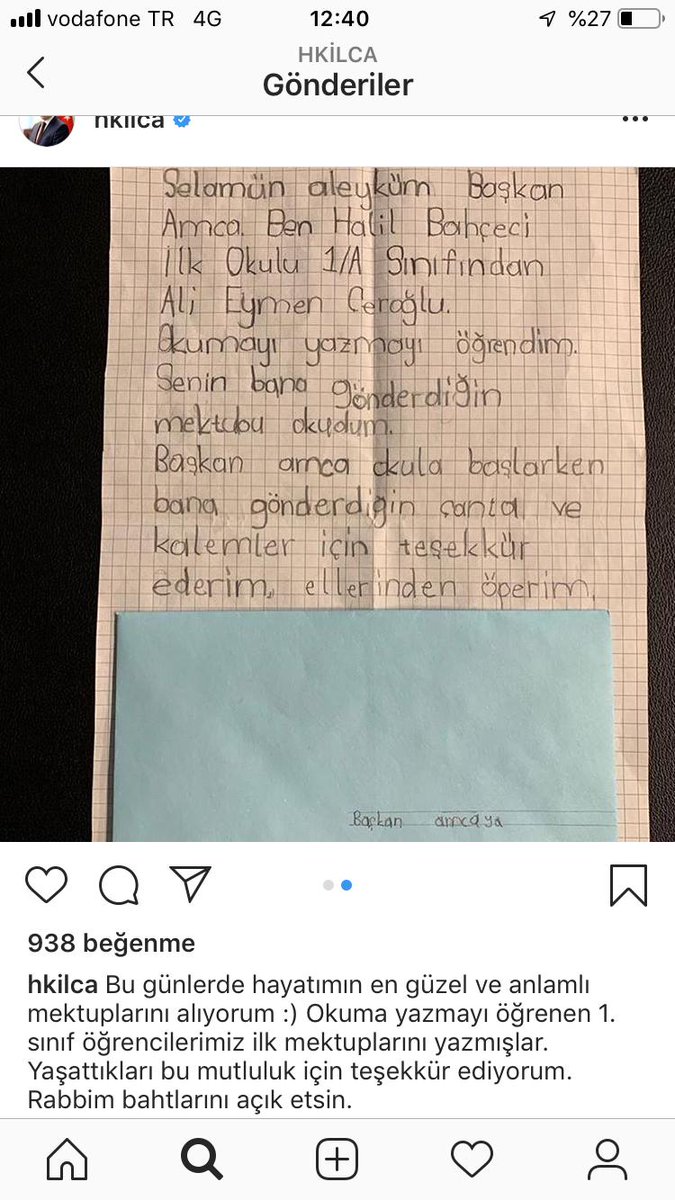 vodafone TR 4G 12:40 %27
HKİLCA
Gönderiler
hkilca
Selamün aleyküm Başkan
Amca. Ben Halil Bahçeci
İlk Okulu 1/A Sınıfından
Ali Eymen Ceroğlu.
Okumayı yazmayı öğrendim.
Senin bana gönderdiğin
mektubu okudum.
Başkan amca okula başlarken
bana gönderdiğin çanta ve
kalemler için teşekkür
ederim, ellerinden öperim,
Başkan amcaya
938 beğenme
hkilca Bu günlerde hayatımın en güzel ve anlamlı
mektuplarını alıyorum :) Okuma yazmayı öğrenen 1.
sınıf öğrencilerimiz ilk mektuplarını yazmışlar.
Yaşattıkları bu mutluluk için teşekkür ediyorum.
Rabbim bahtlarını açık etsin.